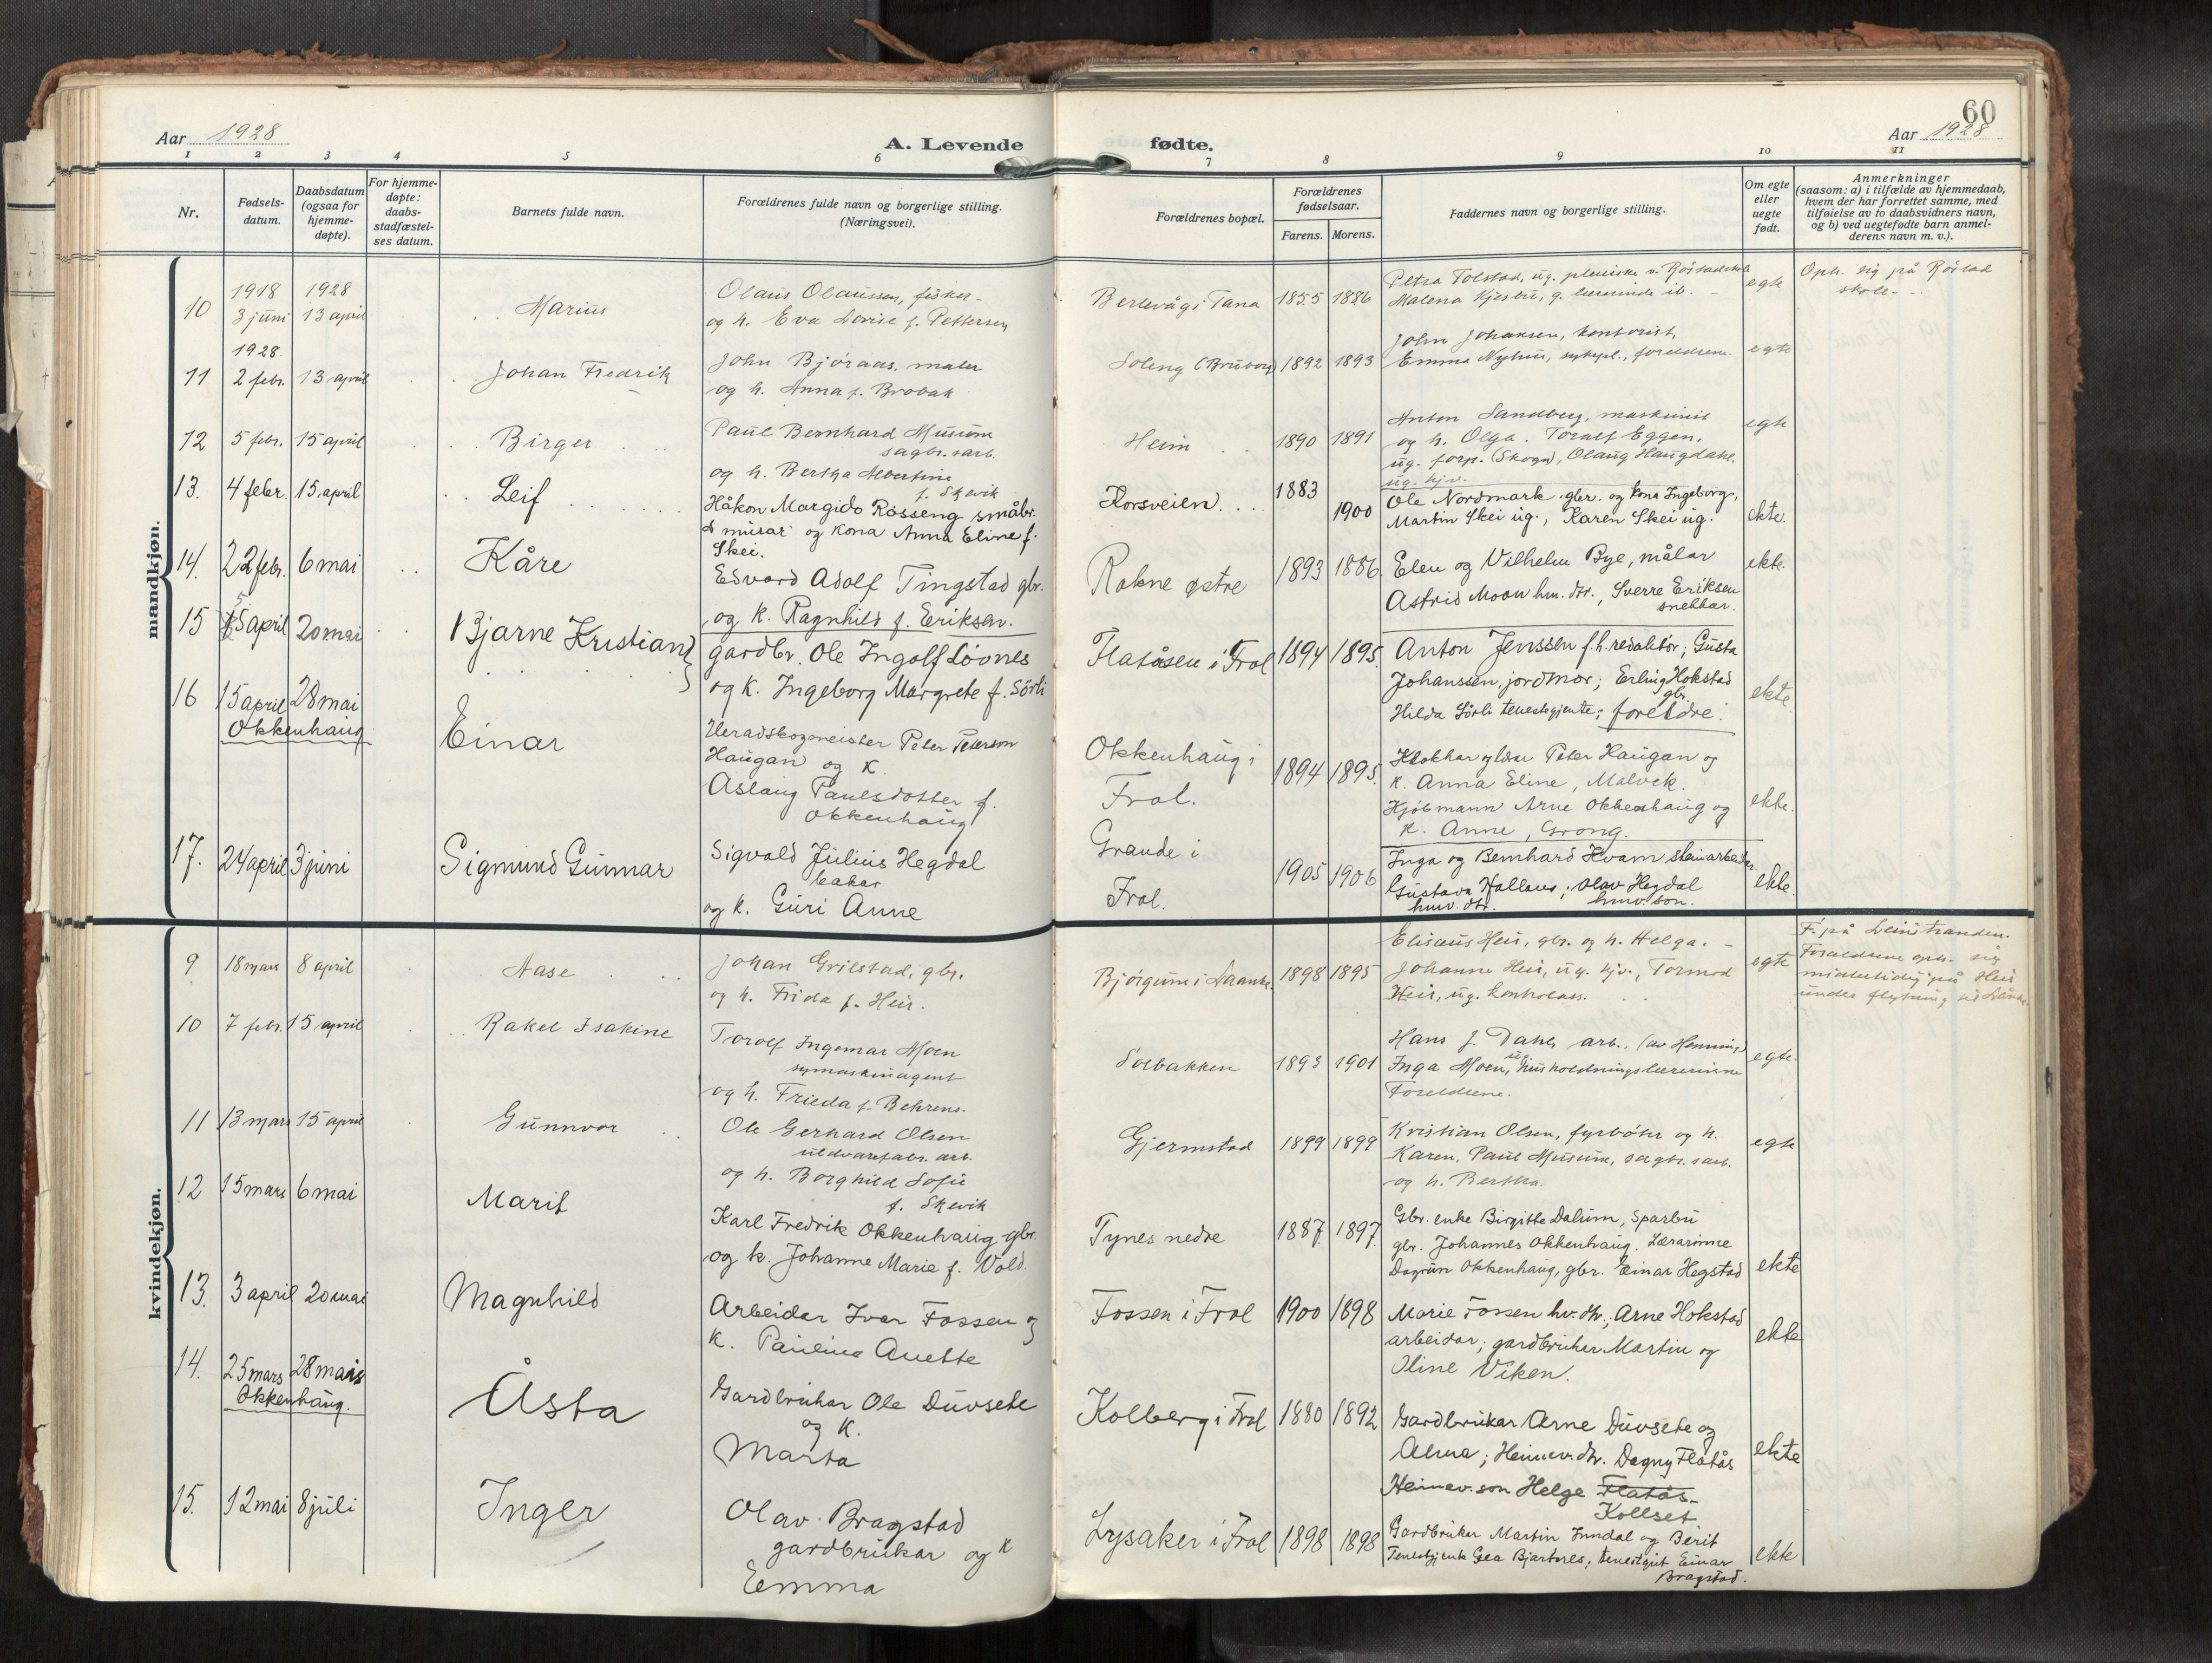 60
Aar 1928
A. Levende
fødte.
Aar 1928
1 2 3 4 5 6 7 8 9 10 11
Nr.
Fødsels-
datum.
Daabsdatum
(ogsaa for
hjemme-
døpte).
For hjemme-
døpte:
daabs-
stadfæstel-
ses datum.
Barnets fulde navn.
Forældrenes fulde navn og borgerlige stilling.
(Næringsvei).
Forældrenes bopæl.
Forældrenes
fødselsaar.
Farens. Morens.
Faddernes navn og borgerlige stilling.
Om egte
eller
uegte
født.
Anmerkninger
(saasom: a) i tilfælde av hjemmedaab,
hvem der har forrettet samme, med
tilføielse av to daabsvidners navn,
og b) ved uegtefødte barn anmel-
derens navn m. v.).
mandkjøn.
10
1918 1928
3 juni 13 april
Marius
Olaus Olaussen, fisker
og h. Eva Lovise f. Pettersen
Berlevåg i Tana
1855 1886
Petra Tolstad, ug. pleierske v. Røstadskole
Malena Kjesbu, g. lærerinde ib.
egte
Oph. sig på Røstad
skole.
11
1928.
2 febr. 13 april
Johan Fredrik
John Bjøraas, maler
og h. Anna f. Brobak
Soleng (Bruborg)
1892 1893
John Johansen, kontorist,
Emma Nyhus, sykepl., foreldrene.
egte
12 5 febr. 15 april
Birger
Paul Bernhard Musum
sagbr.sarb.
og h. Bertha Albertine
f. Skevik
Heim
1890 1891
Anton Sandberg, maskinist
og h. Olga. Toralf Eggen,
ug. forp. (Skogn), Olaug Haugdahl
ug. hjv.
egte
13. 4 febr. 15 april
Leif
Håkon Margido Rosseng småbr.
& murar og kona Anna Eline f.
Skei.
Korsveien
1883 1900
Ole Nordmark gbr. og kona Ingeborg,
Martin Skei ug., Karen Skei ug.
ekte.
14. 22 febr. 6 mai
Kåre
Edvard Adolf Tingstad gbr.
og k. Ragnhild f. Eriksen.
Rokne østre
1893 1886.
Elen og Vilhelm Bye, målar
Astrid Moan hm. dtr., Sverre Eriksen
snekkar.
ekte.
15 5 april 20 mai
Bjarne Kristian
gardbr. Ole Ingolf Løvnes
og k. Ingeborg Margrete f. Sörli
Flatåsen i Frol
1894 1895.
Anton Jenssen f.h. redaktør; Gusta
Johanssen, jordmor; Erling Hokstad
gbr.
Hilda Sörli tenestegjente; foreldre.
ekte.
16 15 april 28 mai
Okkenhaug
Einar
Heradskogmeister Peter Peterson
Haugan og k.
Aslaug Paulsdotter f.
Okkenhaug
Okkenhaug i
Frol.
1894 1895.
Klokkar Peter Haugan og
k. Anna Eline, Malvik.
Kjöbmann Arne Okkenhaug og
k. Anne, Grong.
ekte.
17. 24 april 3 juni
Sigmund Gunnar
Sigvald Julius Hegdal
bakar
og k. Guri Anne
Grande i
Frol.
1905 1906
Inga og Bernhard Hvam steinarbeidar.
Gustava Hallans; Olav Hegdal
hmv. dtr. hmv. son.
ekte.
kvindekjøn.
9 18 mars 8 april
Aase
Johan Grilstad, gbr.
og h. Frida f. Heir.
Bjørgum i Skaanes
1898 1895
Elisæus Heir, gbr. og h. Helga.
Johanne Heir, ug. hjv., Tormod
Heir, ug.
egte
F. på Leinstranden.
Foreldrene oph. sig
midlertidig på Heir
under flytning
10 7 febr. 15 april
Rakel Isakine
Torolf Ingemar Moen
symaskinagent
og h. Frieda f. Behrens.
Solbakken
1893 1901
Hans J. Dahl, arb. (av Henning)
Inga Moen, ug. husholdningslærerinne
Foreldrene.
egte.
11 13 mars 15 april
Gunnvor
Ole Gerhard Olsen
uldvarefabr. arb.
og h. Borghild Sofie
f. Skevik
Gjermstad
1899 1899
Kristian Olsen, fyrbøter og h.
Karen, Paul Musum, sagbr.sarb.
og h. Bertha.
egte
12 15 mars 6 mai
Marit
Karl Fredrik Okkenhaug gbr.
og k. Johanne Marie f. Vold.
Tynes nedre
1887. 1897.
Gbr. enke Birgitte Dalum, Sparbu
gbr. Johannes Okkenhaug. Lærarinne
Dagrun Okkenhaug, gbr. Einar Hegstad
ekte
13. 3 april 20 mai
Magnhild
Arbeidar Ivar Fossen og
k. Pauline Anette
Fossen i Frol
1900 1898
Marie Fossen hv. dtr.; Arne Hokstad
arbeidar; gardbrukar Martin og
Oline Viken.
ekte
14. 25 mars 28 mai
Okkenhaug.
Åsta
Gardbrukar Ole Duvsete
og k.
Marta
Kolberg i Frol
1880 1892
Gardbrukar Arne Duvsete og
Alma; Heimev. dtr. Dagny Flatås
Heimev. son Helge Flatås
Kollset
ekte
15. 12 mai 8 juli
Inger
Olav Bragstad
gardbrukar og k
Emma
Lysaker i Frol
1898 1898
Gardbruker Martin Inndal og Berit
Tenestgjente Gea Bjartnes; tenestgut Einar
Bragstad.
ekte